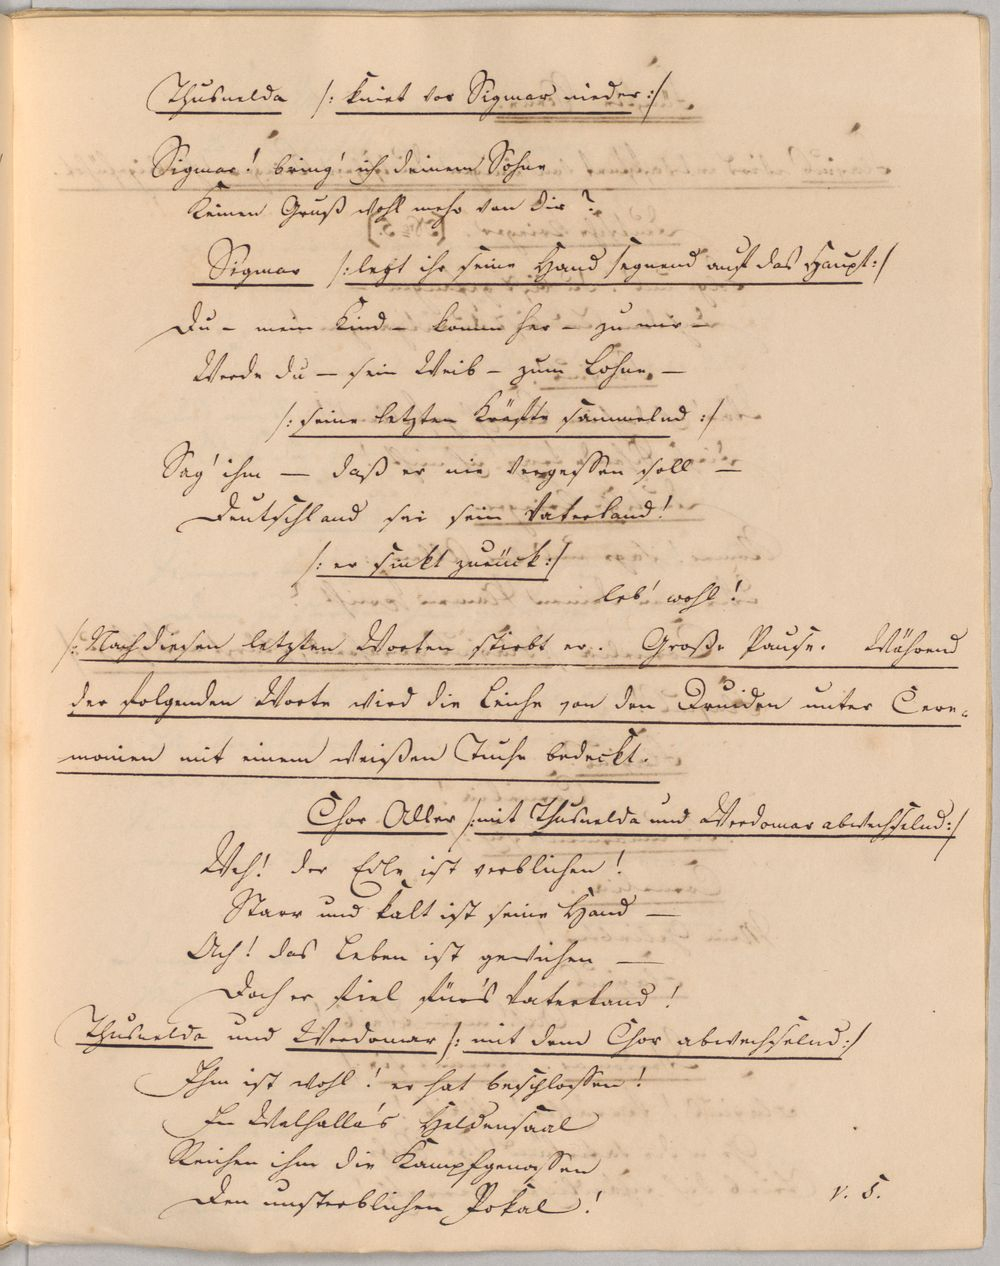 Thusnelda /: kniet vor Sigmar nieder :/
Sigmar! bring' ich deinem Sohne
Keinen Gruß wohl mehr von dir?
Sigmar /: legt ihr seine Hand segnend auf das Haupt :/
Du – mein Kind – komm her – zu mir –
Werde du – sein Weib – zum Lohne –
/: seine letzten Kräfte sammelnd :/
Sag' ihm — daß er nie vergessen soll —
Deutschland sei sein Vaterland!
/: er sinkt zurück :/
leb' wohl!
/: Nach diesen letzten Worten stirbt er. Große Pause. Während
der folgenden Worte wird die Leiche von den Druiden unter Cere-
monien mit einem weißen Tuche bedeckt.
Chor Aller /: mit Thusnelda und Werdomar abwechselnd :/
Weh! der Edle ist verblichen!
Starr und kalt ist seine Hand —
Ach! das Leben ist gewichen —
Doch er fiel für's Vaterland!
Thusnelda und Werdomar /: mit dem Chor abwechselnd :/
Ihm ist wohl! er hat beschlossen!
In Walhalla's Heldensaal
Reichen ihm die Kampfgenossen
Den unsterblichen Pokal!
v. S.